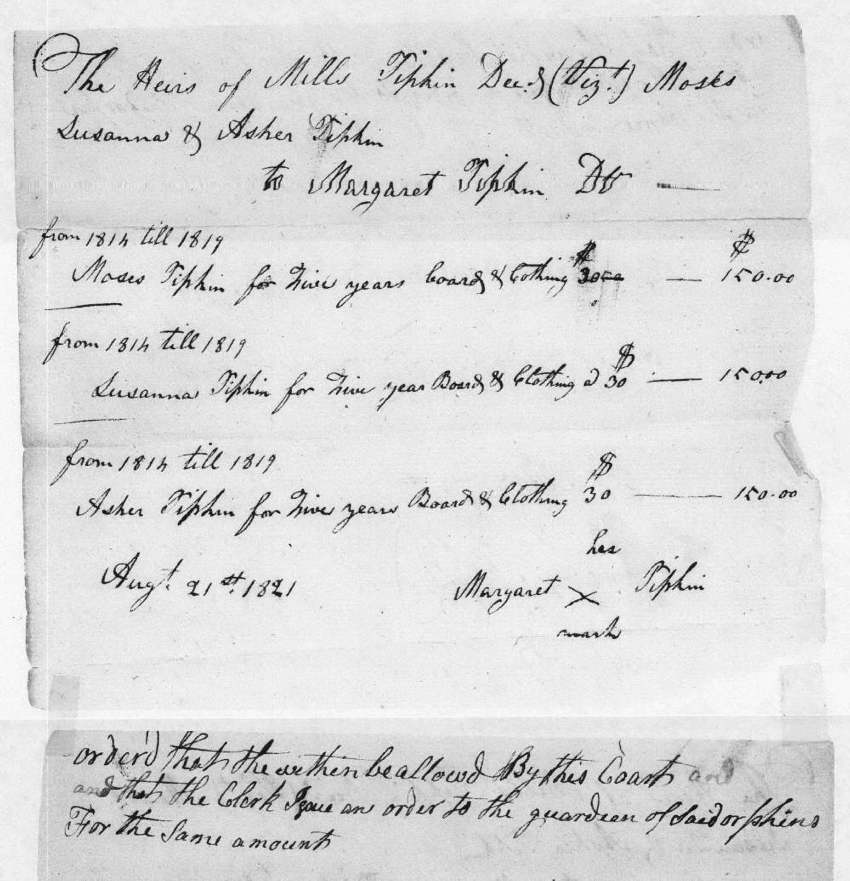 The Heirs of Mills Tiphin Dec.d (Vizt.) Moses
Susanna & Asher Tiphin
to Margaret Tiphin Dr
from 1814 till 1819 $
Moses Tiphin for Five years board & Cothing $ 30 — 150.00
from 1814 till 1819
Susanna Tiphin for Five year Board & Clothing @ $30 — 150.00
from 1814 till 1819
Asher Tiphin for Five years Board & Clothing $30 — 150.00
her
Augt. 21st. 1821 Margaret X Tiphin
mark
order'd that the within be allowd By this Coart and
and that the Clerk Isaue an order to the guardian of said orphins
For the same amount